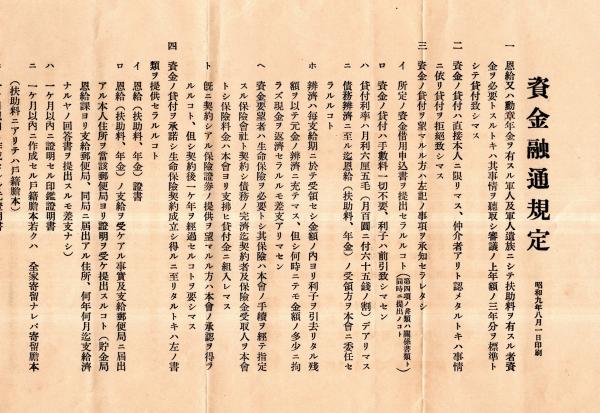 資金融通規定
昭和九年八月一日印刷
一 恩給又ハ勳章年金ヲ有スル軍人及軍人遺族ニシテ扶助料ヲ有スル者資
金ヲ必要トスルトキハ其事情ヲ聽取シ審議ノ上年額ノ三年分ヲ標準ト
シテ貸付致シマス
二 資金ノ貸付ハ直接本人ニ限リマス、仲介者アリト認メタルトキハ事情
ニ依リ貸付ヲ拒絕致シマス
三 資金ノ貸付ヲ望マルル方ハ左記ノ事項ヲ承知セラレタシ
イ 所定ノ資金借用申込書ヲ提出セラルルコト(第四項ノ書類ハ關係書類ト同時ニ提出ノコト)
ロ 資金ノ貸付ハ手數料一切不要、利子ハ前引致シマセン
ハ 貸付利率ハ月利六厘五毛(月百圓ニ付六十五錢ノ割)デアリマス
ニ 債務辨濟ニ至ル迄恩給(扶助料、年金)ノ受領方ヲ本會ニ委任セ
ラルルコト
ホ 辨濟ハ每支給期ニ於テ受領セシ金額ノ內ヨリ利子ヲ引去リタル殘
額ヲ以テ元金ノ辨濟ニ充テマス、但シ何時ニテモ金額ノ多少ニ拘
ラズ現金ヲ返濟セラルルモ差支アリマセン
ヘ 資金要望者ハ生命保險ヲ必要トシ其保險ハ本會ノ手續ヲ經テ指定
スル保險會社ト契約シ債務ノ完濟迄契約者及保險金受取人ヲ本會
トシ保險料金ハ本會ヨリ支拂ヒ貸付金ニ組入レマス
ト 既ニ契約シアル保險證券ノ提供ヲ望マルル方ハ本會ノ承認ヲ得ラ
ルルコト、但シ契約後一ケ年ヲ經過セルコトヲ要シマス
四 資金ノ貸付ヲ承諾シ生命保險契約成立シ得ルニ至リタルトキハ左ノ書
類ヲ提供セラルルコト
イ 恩給(扶助料、年金)證書
ロ 恩給(扶助料、年金)ノ支給ヲ受ケアル事實及支給郵便局ニ屆出
アル本人住所ヲ當該郵便局ヨリ證明ヲ受ケ提出スルコト(貯金局
恩給課ヨリ支給郵便局、同局ニ屆出アル住所、何年何月迄支給濟
ナルヤノ回答書ヲ提出スルモ差支ナシ)
ハ 一ケ月以內ニ證明セル印鑑證明書
ニ 一ケ月以內ニ作成セル戶籍謄本若クハ 全家寄留ナレバ寄留謄本
(扶助料ニアリテハ戶籍謄本)